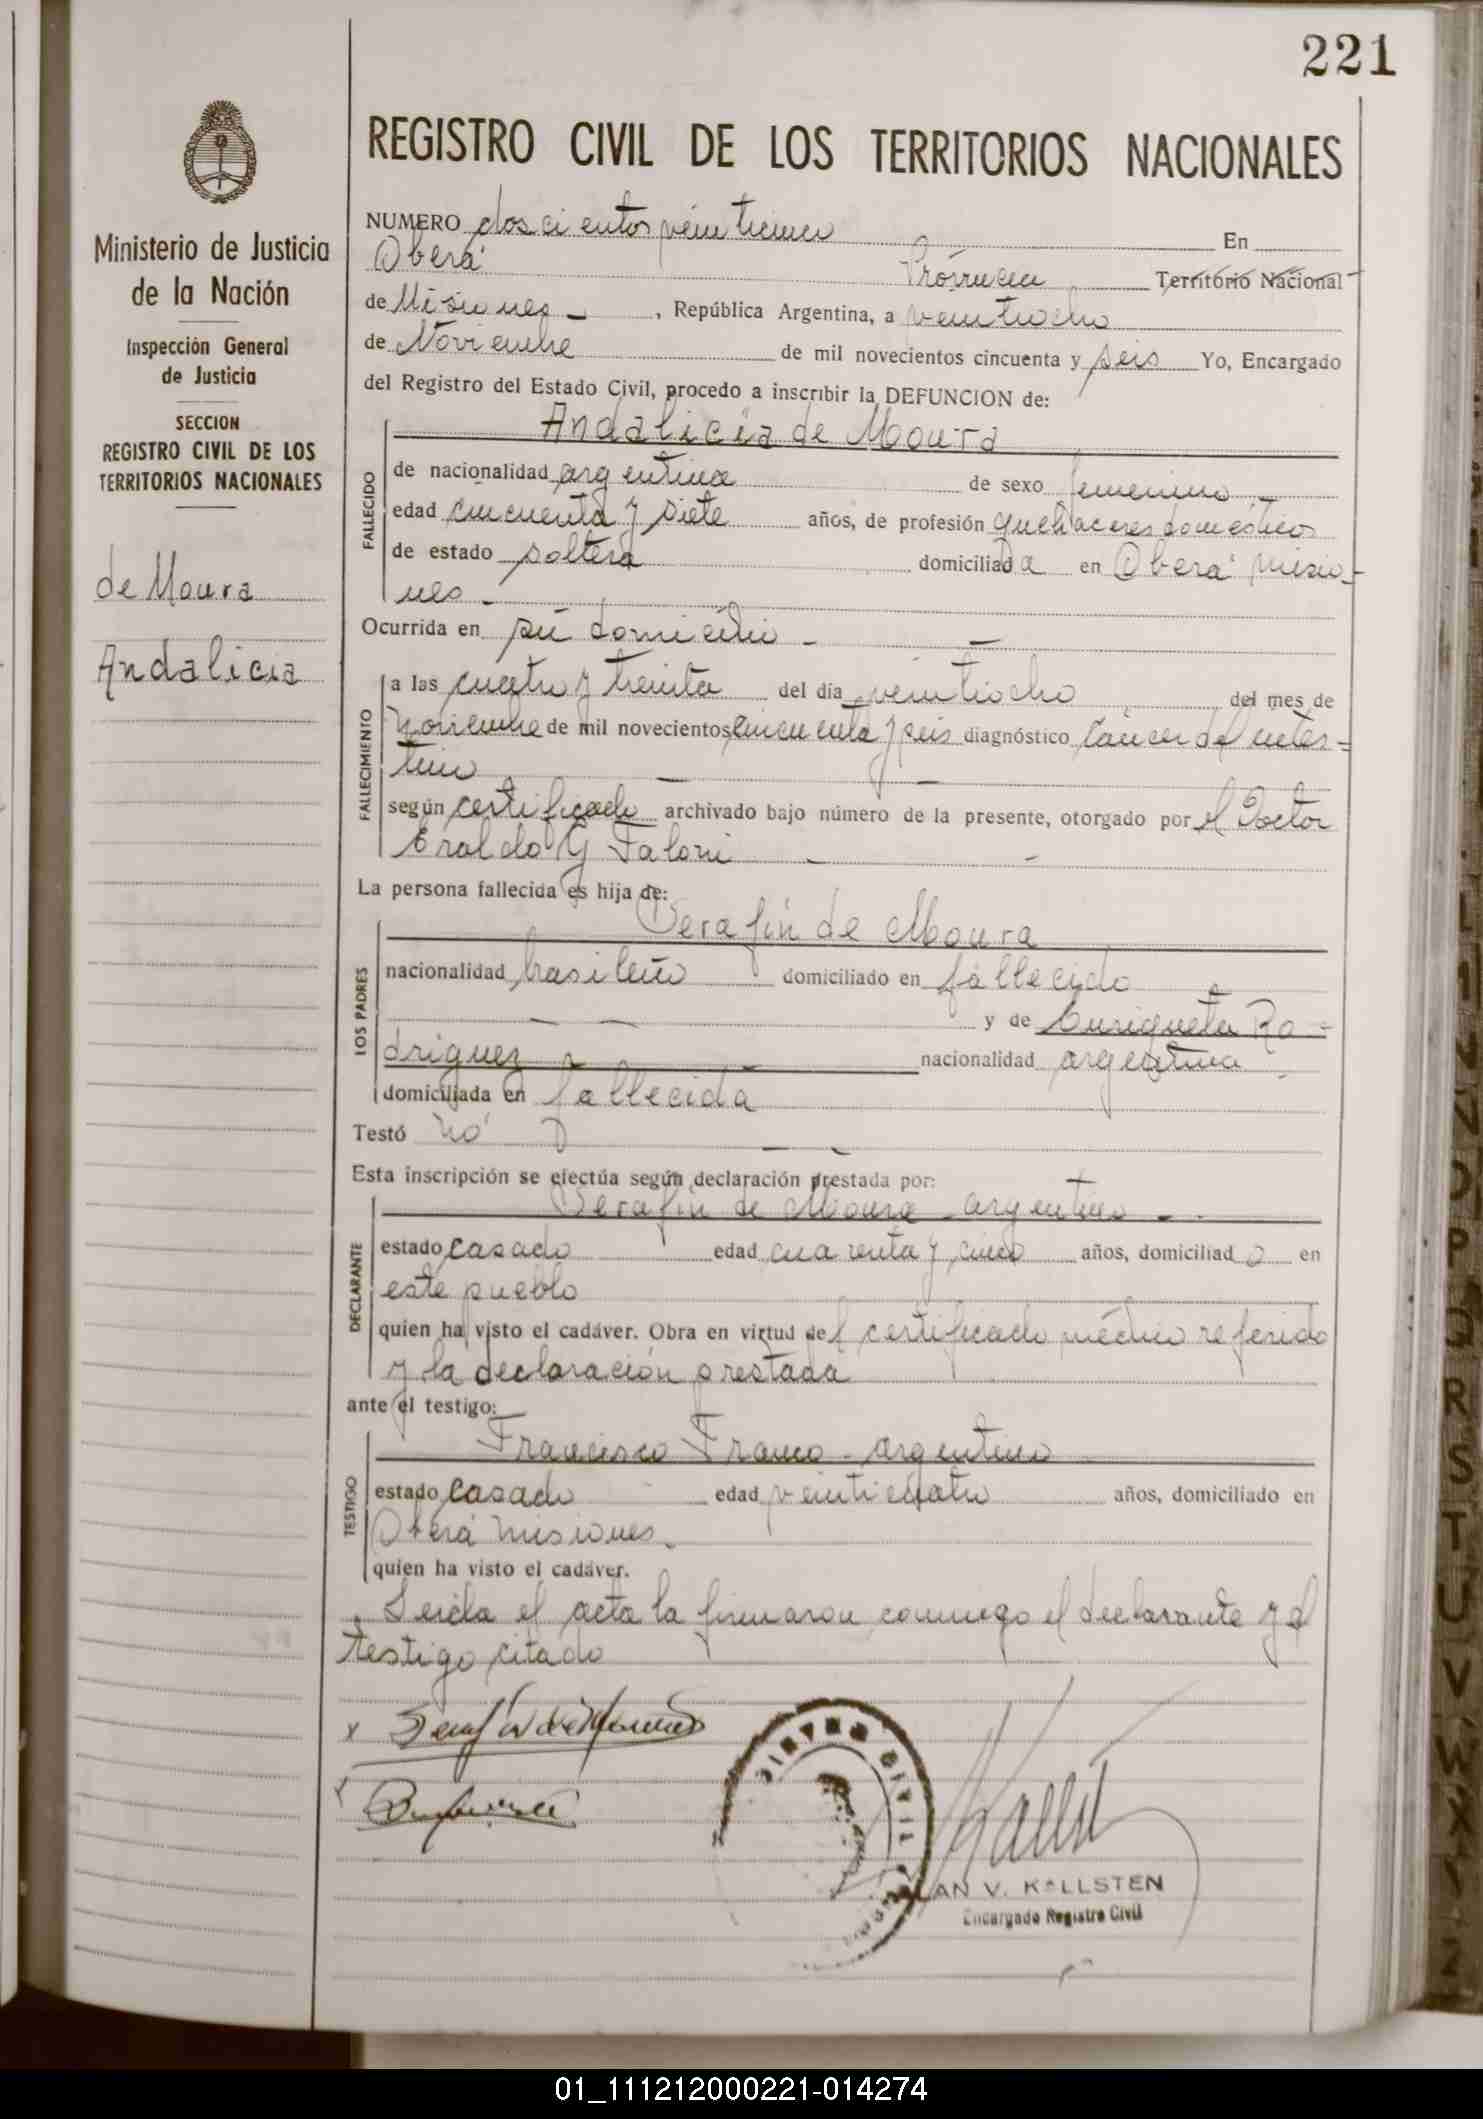 221
Ministerio de Justicia
de la Nación
Inspección General
de Justicia
SECCION
REGISTRO CIVIL DE LOS
TERRITORIOS NACIONALES
de Moura
Andalicia
REGISTRO CIVIL DE LOS TERRITORIOS NACIONALES
NUMERO doscientos veintiuno En
Oberá Provincia Territorio Nacional
de Misiones , República Argentina, a veintiocho
de Noviembre de mil novecientos cincuenta y seis Yo, Encargado
del Registro del Estado Civil, procedo a inscribir la DEFUNCION de:
Andalicia de Moura
FALLECIDO
de nacionalidad argentina de sexo femenino
edad cincuenta y siete años, de profesión quehaceres domésticos
de estado soltera domiciliada en Oberá Misio-
nes -
Ocurrida en su domicilio -
FALLECIMIENTO
a las cuatro y treinta del día veintiocho del mes de
Noviembre de mil novecientos cincuenta y seis diagnóstico Cáncer del intes-
tino
según certificado archivado bajo número de la presente, otorgado por el Doctor
Eraldo G Faloni
La persona fallecida es hija de:
Serafín de Moura
LOS PADRES
nacionalidad brasileño domiciliado en fallecido
y de Enriqueta Ro-
driguez nacionalidad argentina
domiciliada en fallecida
Testó no
Esta inscripción se efectúa según declaración prestada por:
Serafín de Moura - argentino -
DECLARANTE
estado casado edad cuarenta y cinco años, domiciliado en
este pueblo
quien ha visto el cadáver. Obra en virtud del certificado médico referido
y la declaración prestada
ante el testigo:
Francisco Franco - argentino
TESTIGO
estado casado edad veinticuatro años, domiciliado en
Oberá Misiones
quien ha visto el cadáver.
Leída el acta la firmaron conmigo el declarante y el
testigo citado
x Serafín de Moura
REGISTRO CIVIL
AN V. KALLSTEN
Encargado Registro Civil
01_111212000221-014274